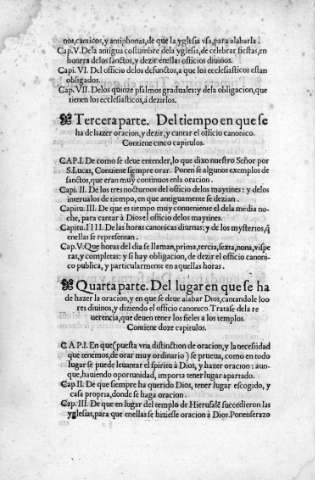 nos, canticos, y antiphonas, de que la yglesia vsa, para alabarla.
Cap. V. Dela antigua costumbre dela yglesia, de celebrar fiestas, en
honrra delos sanctos, y dezir enellas officios diuinos.
Capi. VI. Del officio delos defunctos, a que los ecclesiasticos estan
obligados.
Cap. VII. Delos quinze psalmos graduales: y dela obligacion, que
tienen los ecclesiasticos, à dezirlos.
Tercera parte. Del tiempo en que se
ha de hazer oracion, y dezir, y cantar el officio canonico.
Contiene cinco capitulos.
CAP. I. De como se deue entender, lo que dixo nuestro Señor por
S. Lucas, Conuiene siempre orar. Ponen se algunos exemplos de
sanctos, que eran muy continuos enla oracion.
Capi. II. De los tres nocturnos del officio delos maytines: y delos
interualos de tiempo, en que antiguamente se dezian.
Capitu. III. De que es tiempo muy conueniente el dela media no
che, para cantar à Dios el officio delos maytines.
Capitu. IIII. De las horas canonicas diurnas: y de los mysterios, q̃
enellas se representan.
Cap. V. Que horas del dia se llaman, prima, tercia, sexta, nona, vispe
ras, y completas: y si hay obligacion, de dezir el officio canoni
co publica, y particularmente en aquellas horas.
Quarta parte. Del lugar en que se ha
de hazer la oracion, y en que se deue alabar Dios, cantandole loo
res diuinos, y diziendo el officio canonico. Tratase dela re
uerencia, que deuen tener los fieles a los templos.
Contiene doze capitulos.
CAP. I. En que (puesta vna distinction de oracion, y la necessidad
que tenemos, de orar muy ordinario) se prueua, como en todo
lugar se puede leuantar el spiritu à Dios, y hazer oracion: aun
que, hauiendo oportunidad, importa tener lugar apartado.
Cap. II. De que siempre ha querido Dios, tener lugar escogido, y
casa propria, donde se haga oracion.
Cap. III. De que en lugar del templo de Hierusalẽ succedieron las
yglesias, para que enellas se hiziesse oracion à Dios. Ponense razo